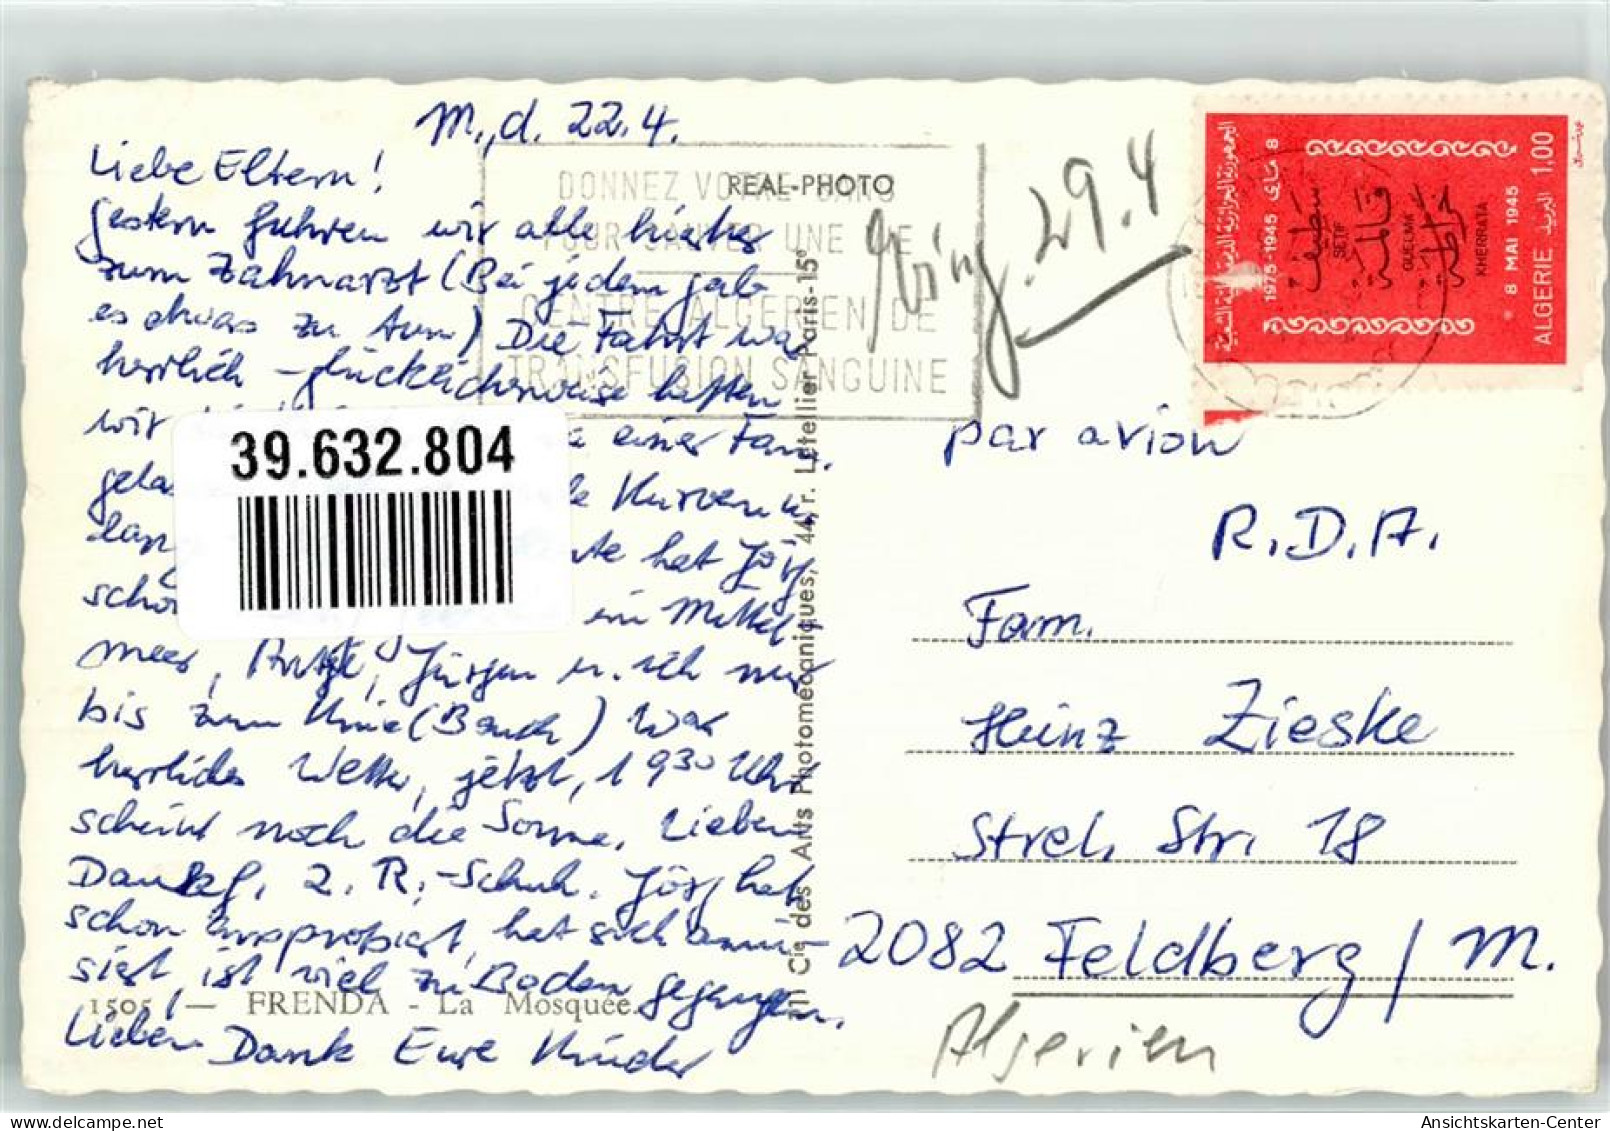 M., d. 22.4.
Liebe Eltern!
gestern fuhren wir alle hierher
zum Zahnarzt (Bei jedem gab
es etwas zu tun) Die Fahrt war
herrlich – glücklicherweise hatten
wir einer Fam.
gela Kurven u.
lan hat Jörg
scho im Mittel-
meer, Antje, Jürgen u. ich nur
bis zum Knie (Bauch) War
herrliches Wetter, jetzt, 19 30 Uhr
scheint noch die Sonne. Lieben
Dank f. 2. R.-Schuh. Jörg hat
schon ausprobiert, hat sich amü-
siert, ist viel zu Boden gegangen.
Lieben Dank Eure Kinder
1505. — FRENDA - La Mosquée.
39.632.804
REAL-PHOTO
DONNEZ VOTRE SANG
POUR SAUVER UNE VIE
CENTRE ALGERIEN DE
TRANSFUSION SANGUINE
Cie des Arts Photomécaniques, 44, r. Letellier Paris-15e
29.4
1975-1945
8 ماي
سطيف
SETIF
قالمة
GUELMA
خراطة
KHERRATA
8 MAI 1945
ALGERIE البريد 1,00
par avion
R.D.A.
Fam.
Heinz Zieske
Strel. Str. 18
2082 Feldberg / M.
Algerien
Ansichtskarten-Center